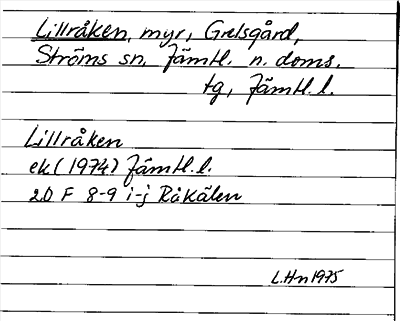 Lillråken, myr, Grelsgård,
Ströms sn. Jämtl. n. doms.
tg, Jämtl. l.
Lillråken
ek (1974) Jämtl. l.
20 F 8-9 i-j Råkälen
L.Hn 1975